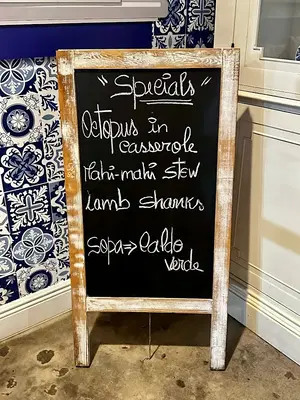 "Specials"
Octopus in
casserole
Mahi-mahi stew
Lamb shanks
Sopa⇒ Caldo
verde